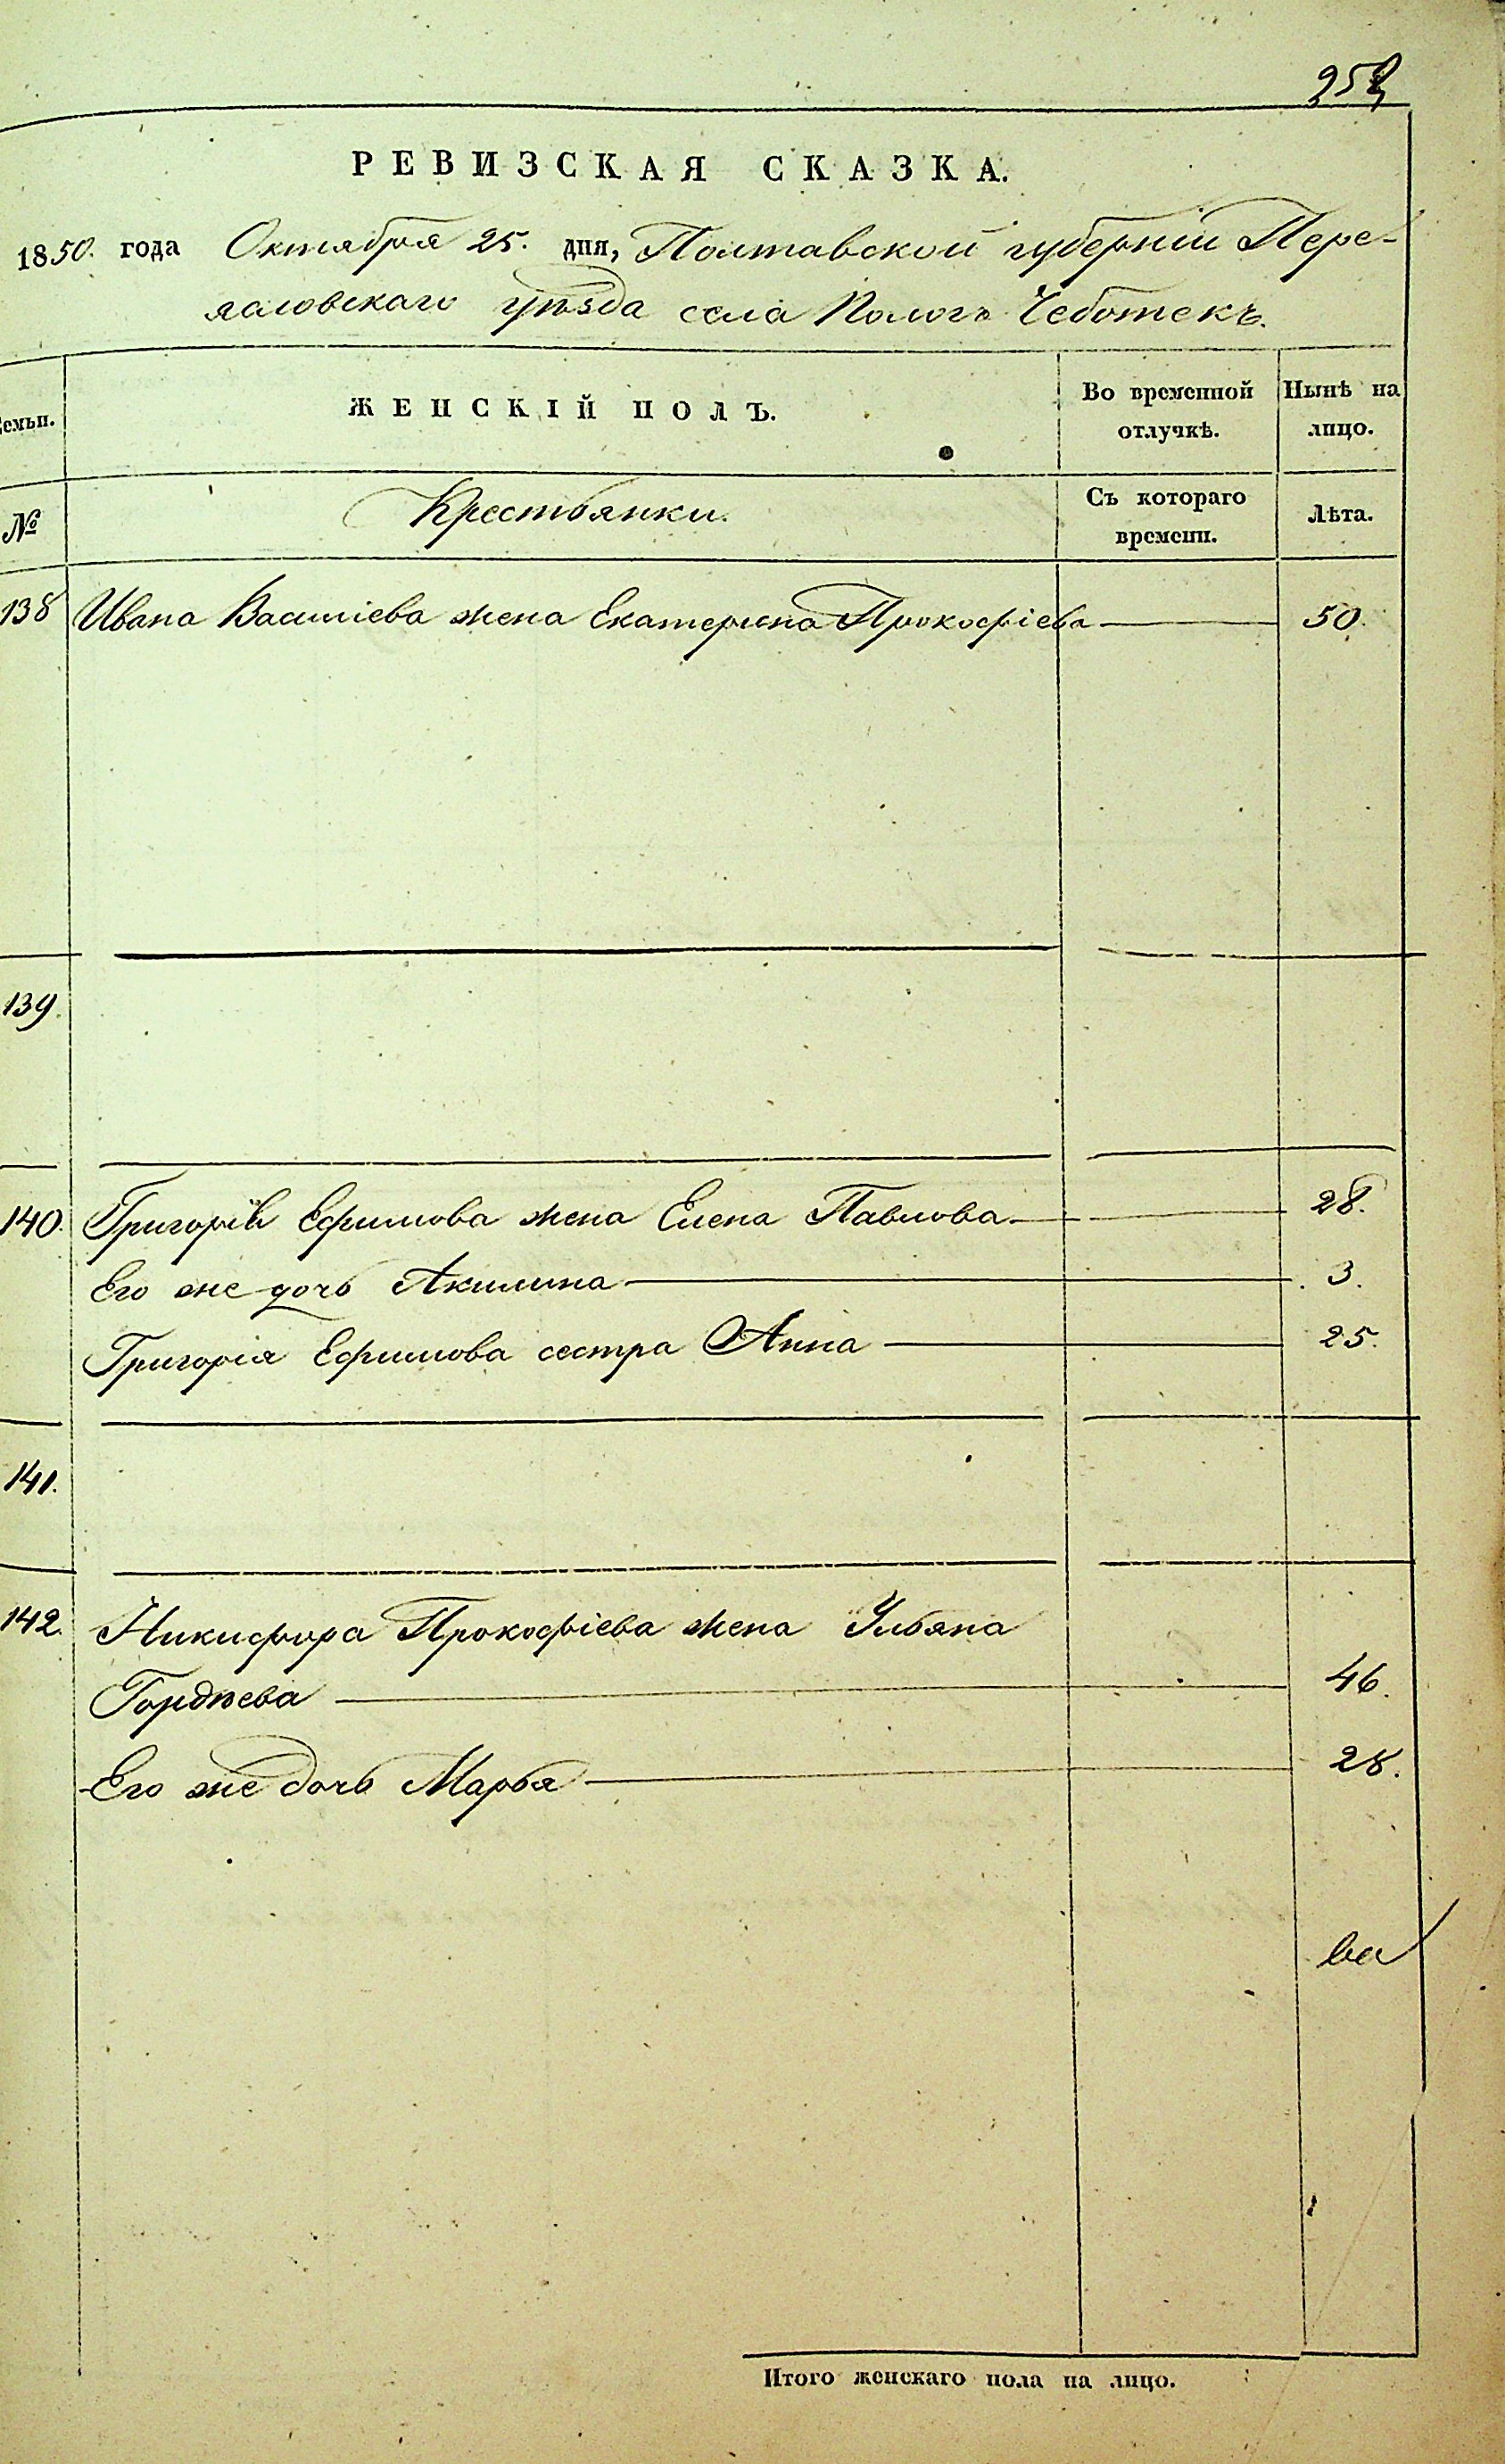 258
РЕВИЗСКАЯ СКАЗКА.
1850. года Октября 25. дня, Полтавской губерніи Пере-
яславскаго уѣзда села Пологъ Чеботекъ.
Семьи. ЖЕНСКІЙ ПОЛЪ. Во временной отлучкѣ. Нынѣ на лицо.
№ Крестьянки. Съ котораго времени. Лѣта.
138 Ивана Василіева жена Екатерина Прокофіева 50.
139.
140. Григорія Ефимова жена Елена Павлова 28.
Его же дочь Акилина 3.
Григорія Ефимова сестра Анна 25.
141.
142. Никифора Прокофіева жена Ульяна
Гордѣева 46.
Его же дочь Марья 28.
ва
Итого женскаго пола на лицо.